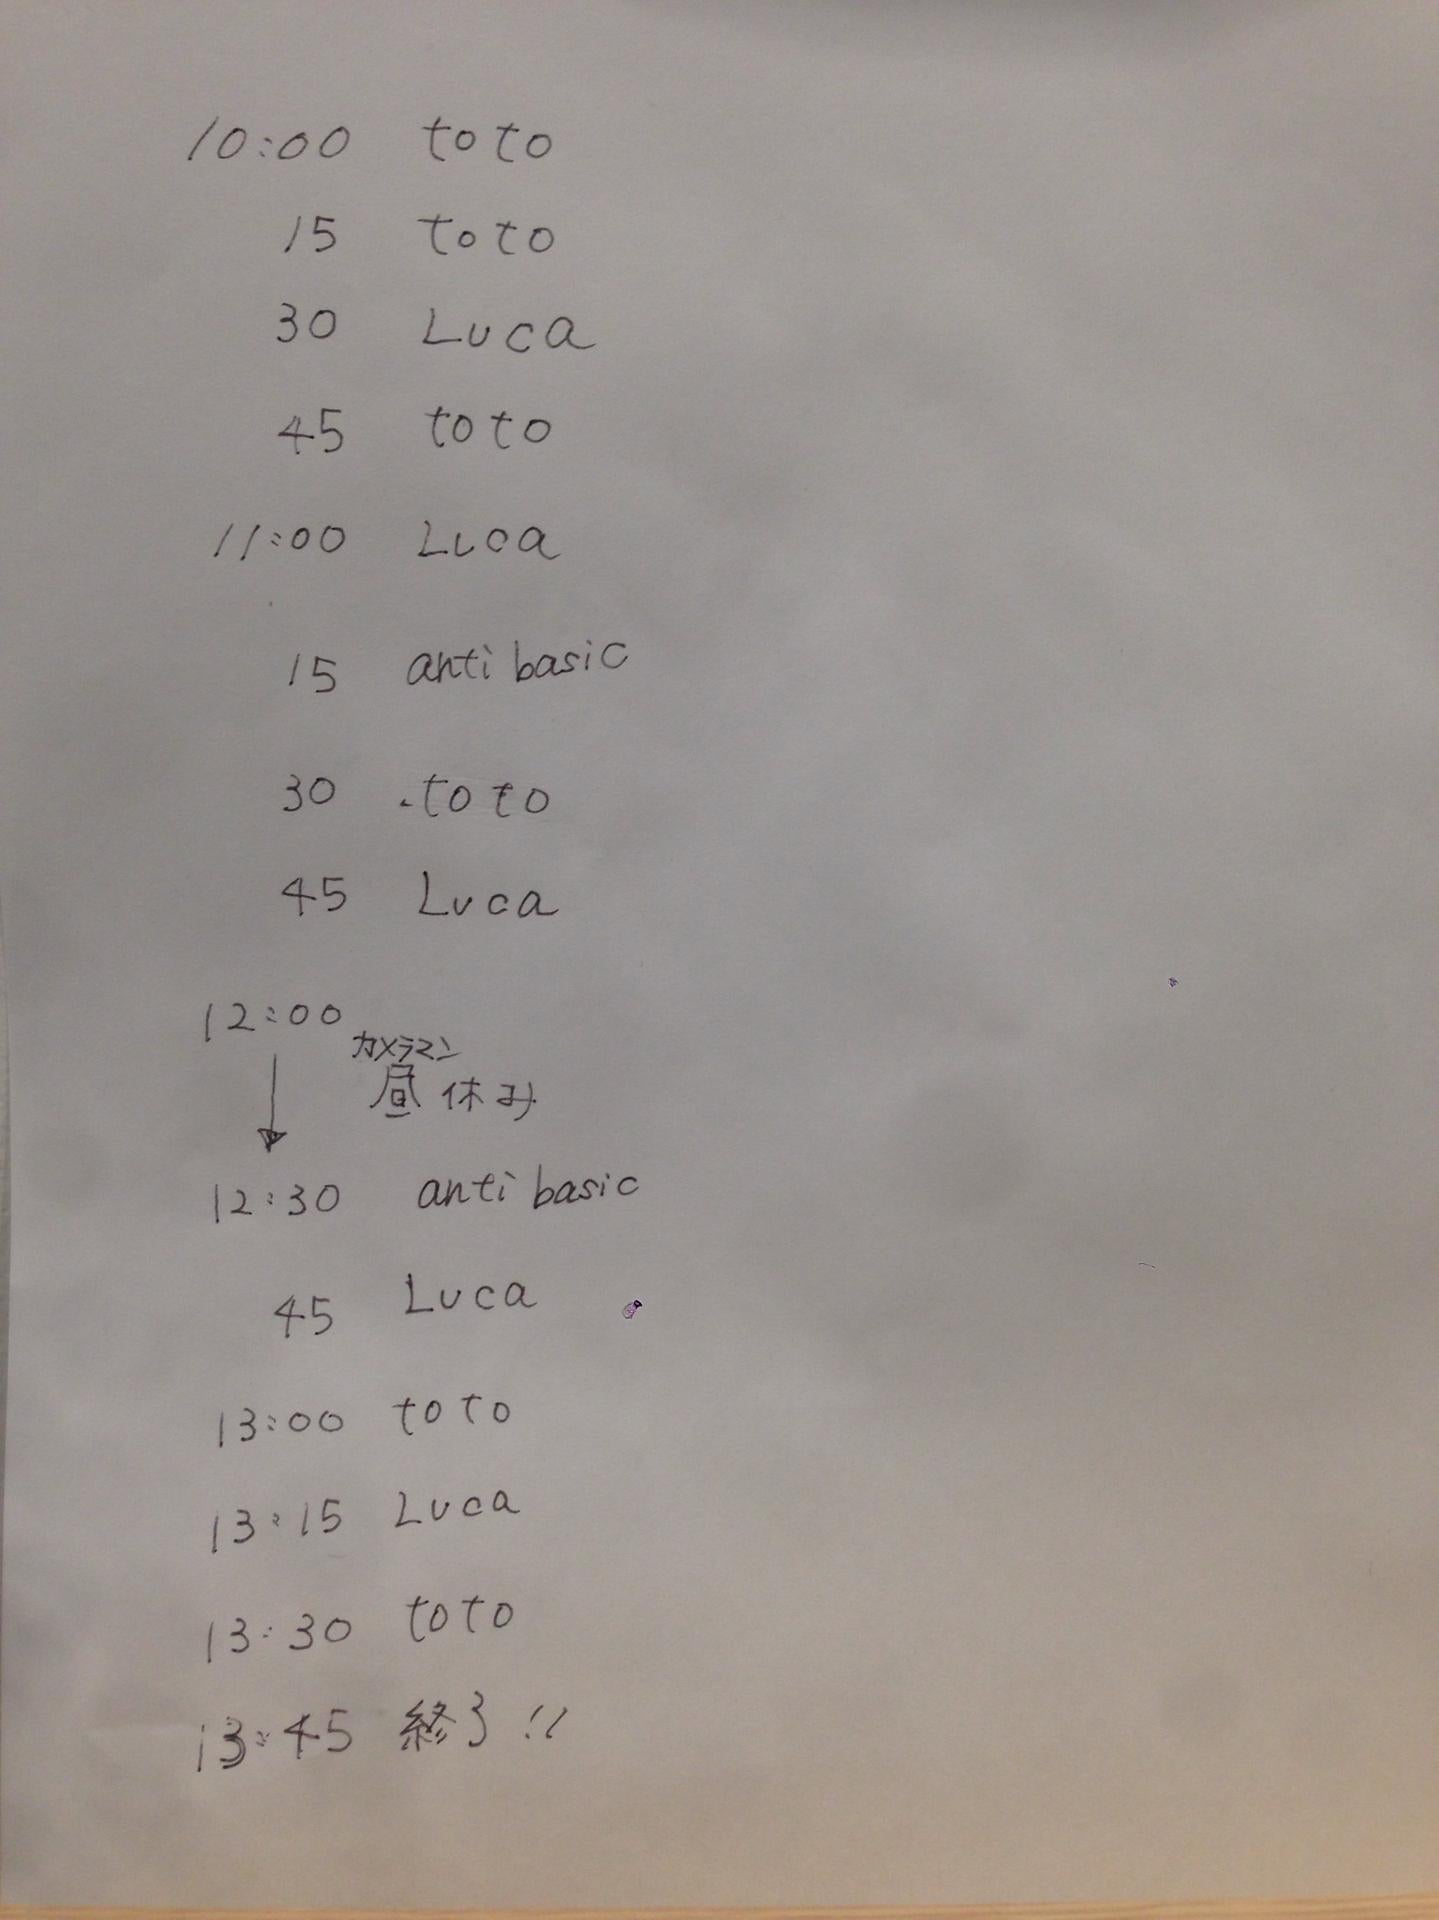 10:00 toto
15 toto
30 Luca
45 toto
11:00 Luca
15 anti basic
30 toto
45 Luca
12:00
カメラマン
昼休み
12:30 anti basic
45 Luca
13:00 toto
13:15 Luca
13:30 toto
13:45 終了!!